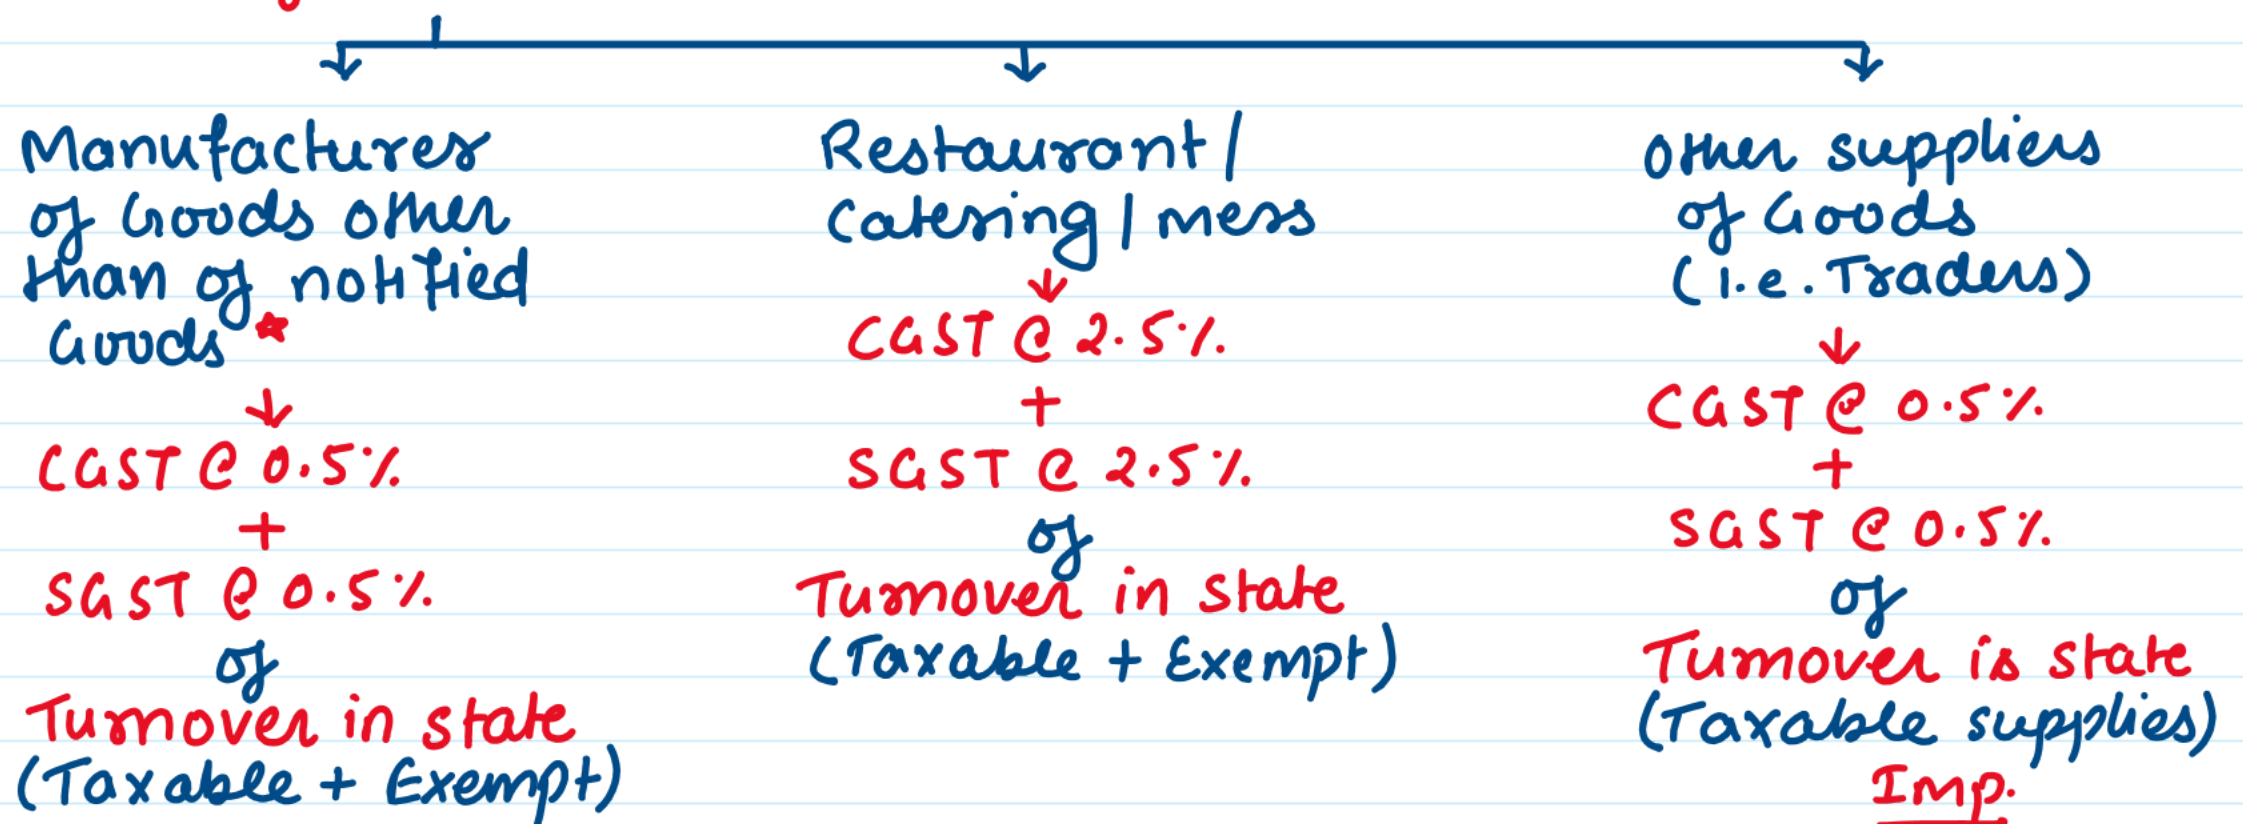 Manufactures
of Goods other
than of notified
Goods*
↓
CGST @ 0.5%
+
SGST @ 0.5%
of
Turnover in state
(Taxable + Exempt)
Restaurant /
Catering / mess
↓
CGST @ 2.5%
+
SGST @ 2.5%
of
Turnover in state
(Taxable + Exempt)
other suppliers
of Goods
(i.e. Traders)
↓
CGST @ 0.5%
+
SGST @ 0.5%
of
Turnover is state
(Taxable supplies)
Imp.